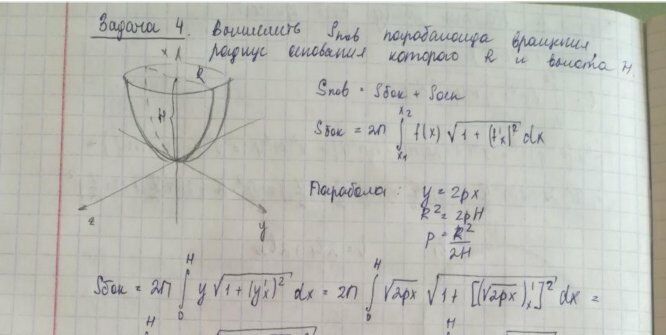 Задача 4. Вычислить Sпов параболоида вращения,
радиус основания которого R и высота H.
x
R
H
z
y
Sпов = Sбок + Sосн
Sбок = 2π ∫_{x₁}^{x₂} f(x) √(1 + (f'x)²) dx
Парабола: y = 2px
R² = 2pH
p = R²/2H
Sбок = 2π ∫_0^H y √(1 + (y'x)²) dx = 2π ∫_0^H √2px √(1 + [(√2px)'x]²) dx =
H H